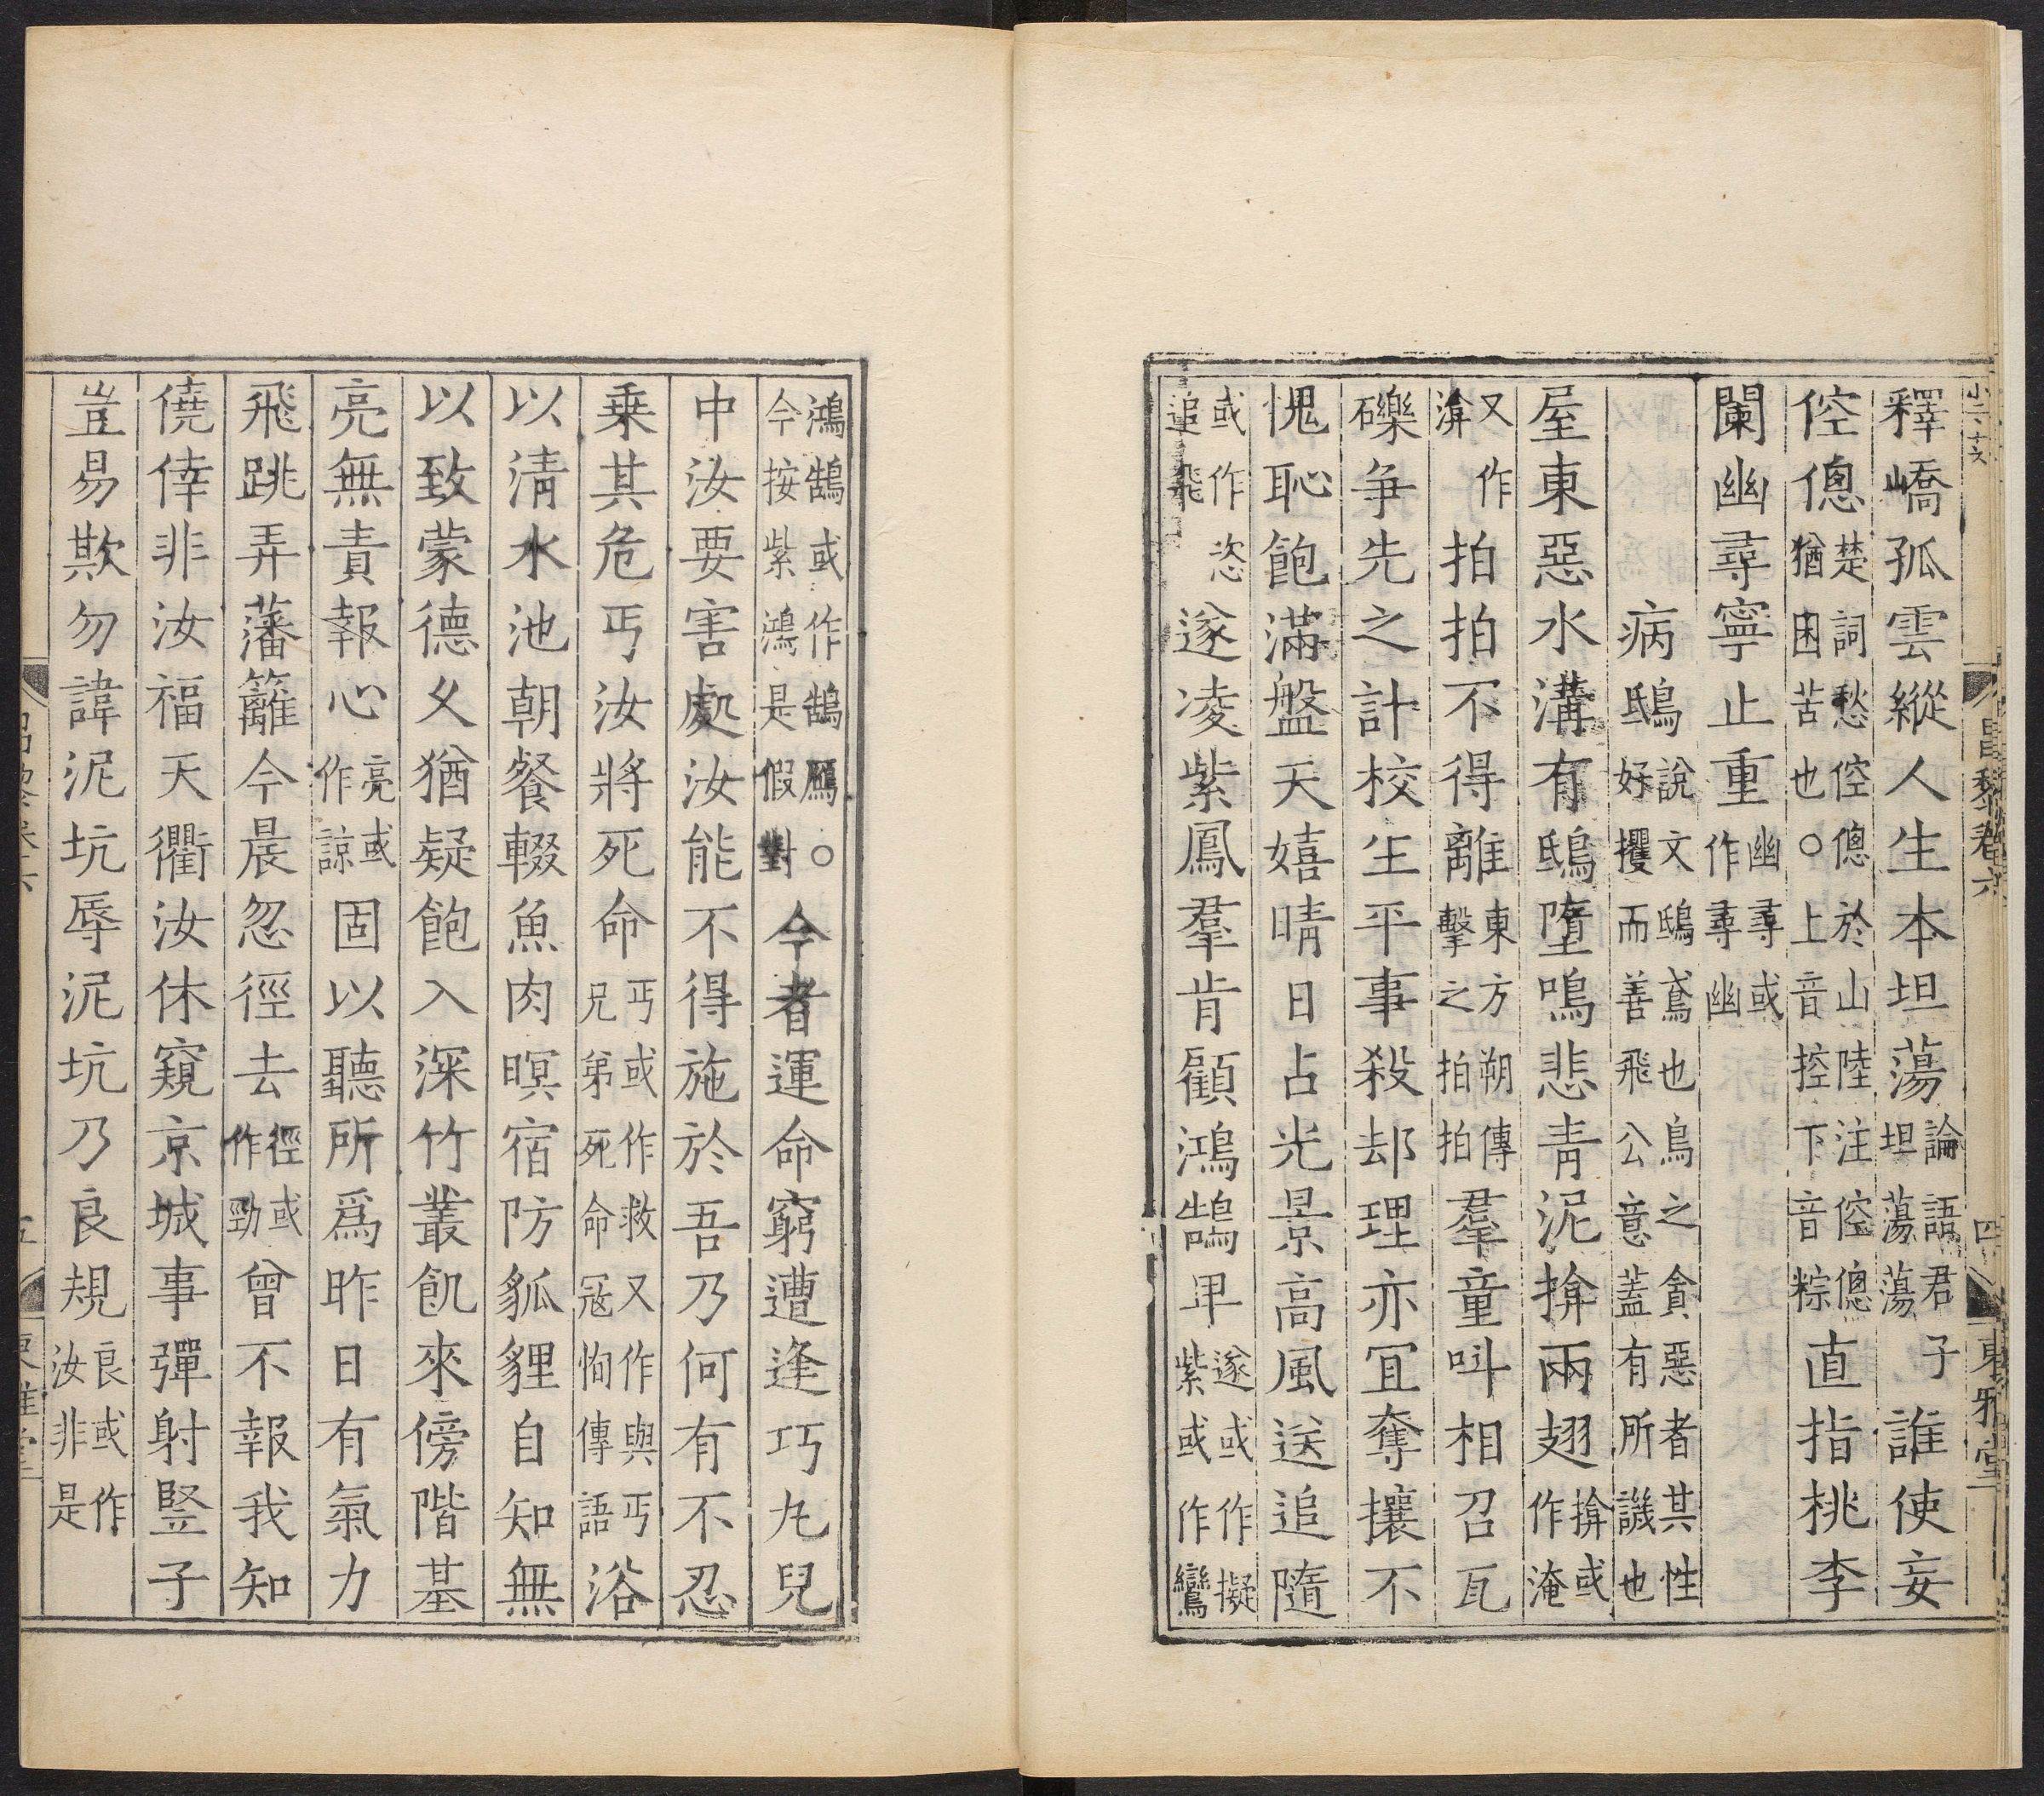 昌黎卷六 四 東雅堂
釋嶠孤雲縱人生本坦蕩論語君子坦蕩蕩誰使妄
倥偬楚詞愁倥偬於山陸注倥偬猶困苦也○上音控下音粽直指桃李
闌幽尋寧止重幽尋或作尋幽
病鴟說文鴟鳶也鳥之貪惡者其性好攫而善飛公意蓋有所譏也
屋東惡水溝有鴟墮鳴悲青泥揜兩翅揜或作淹
又作渰拍拍不得離東方朔傳擊之拍拍羣童叫相召瓦
礫争先之計校生平事殺却理亦宜奪攘不
愧恥飽滿盤天嬉晴日占光景高風送追隨
或作恣追飛遂凌紫鳳羣肯顧鴻鵠卑遂或作擬紫或作鸞
鴻鵠或作鵠鴈○今按紫鴻是假對今者運命窮遭逢巧丸兒
中汝要害處汝能不得施於吾乃何有不忍
乗其危丐汝將死命丐或作救又作與丐兄弟死命冦恂傳語浴
以清水池朝餐輟魚肉暝宿防狐貍自知無
以致蒙德久猶疑飽入深竹叢飢來傍階基
亮無責報心亮或作諒固以聽所爲昨日有氣力
飛跳弄藩籬今晨忽徑去徑或作勁曾不報我知
僥倖非汝福天衢汝休窺京城事彈射豎子
豈易欺勿諱泥坑辱泥坑乃良規良或作汝非是